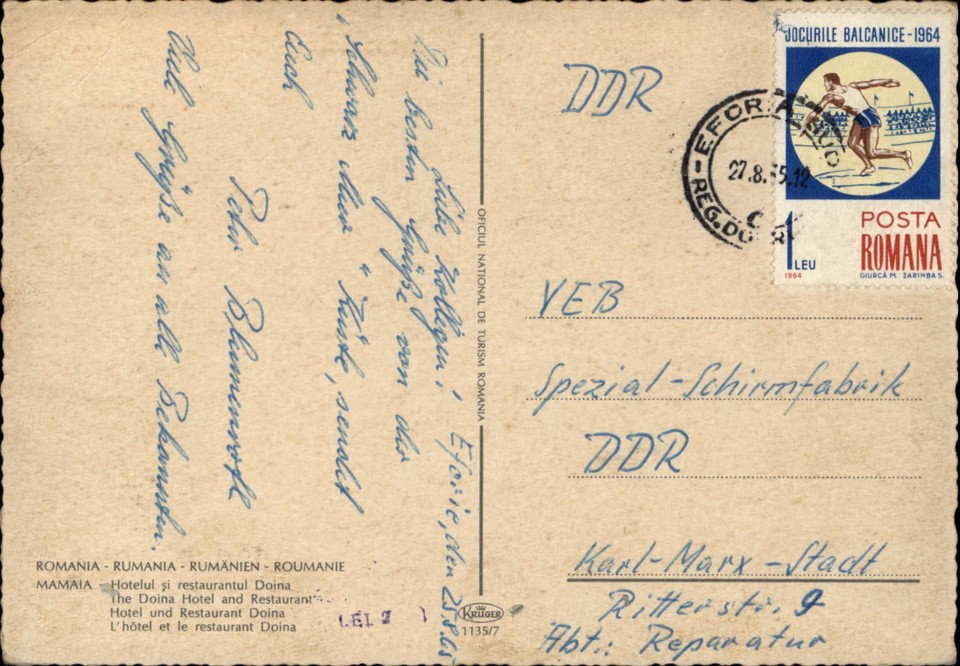 Eforie, den 25.8.65
Liebe Kollegin!
Die besten Grüße von der
„Schwarz Meer" Küste, sendet
Euch
Peter
Viele Grüße an alle Bekannten.
ROMANIA - RUMANIA - RUMÄNIEN - ROUMANIE
MAMAIA - Hotelul și restaurantul Doina
The Doina Hotel and Restaurant
Hotel und Restaurant Doina
L'hôtel et le restaurant Doina
LEI 2
OFICIUL NATIONAL DE TURISM ROMANIA
KRÜGER
1135/7
JOCURILE BALCANICE - 1964
1 LEU
1964
POSTA
ROMANA
GIURCĂ M. ZARIMBA S.
EFORIE SUD
27.8.65.12
REG.DOBR
DDR
VEB
Spezial-Schirmfabrik
DDR
Karl-Marx-Stadt
Ritterstr. 9
Abt.: Reparatur